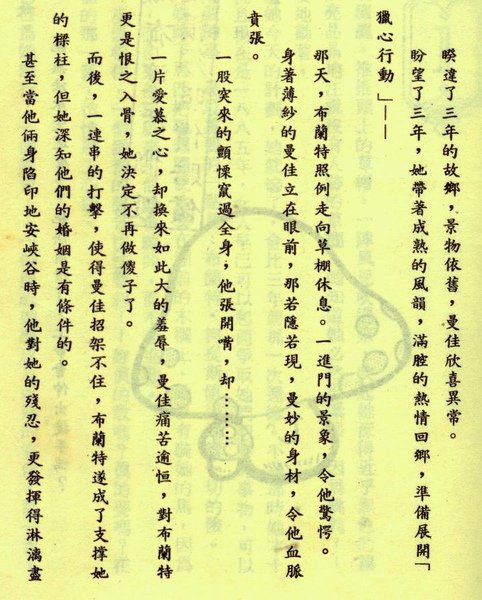 睽違了三年的故鄉，景物依舊，曼佳欣喜異常。
盼望了三年，她帶著成熟的風韻，滿腔的熱情回鄉，準備展開「
獵心行動」——
那天，布蘭特照例走向草棚休息。一進門的景象，令他驚愕。
身著薄紗的曼佳立在眼前，那若隱若現，曼妙的身材，令他血脈
賁張。
一股突來的顫慄竄過全身，他張開嘴，却………
一片愛慕之心，却換來如此大的羞辱，曼佳痛苦逾恒，對布蘭特
更是恨之入骨，她決定不再做儍子了。
而後，一連串的打擊，使得曼佳招架不住，布蘭特遂成了支撐她
的樑柱，但她深知他們的婚姻是有條件的。
甚至當他倆身陷印地安峽谷時，他對她的殘忍，更發揮得淋漓盡